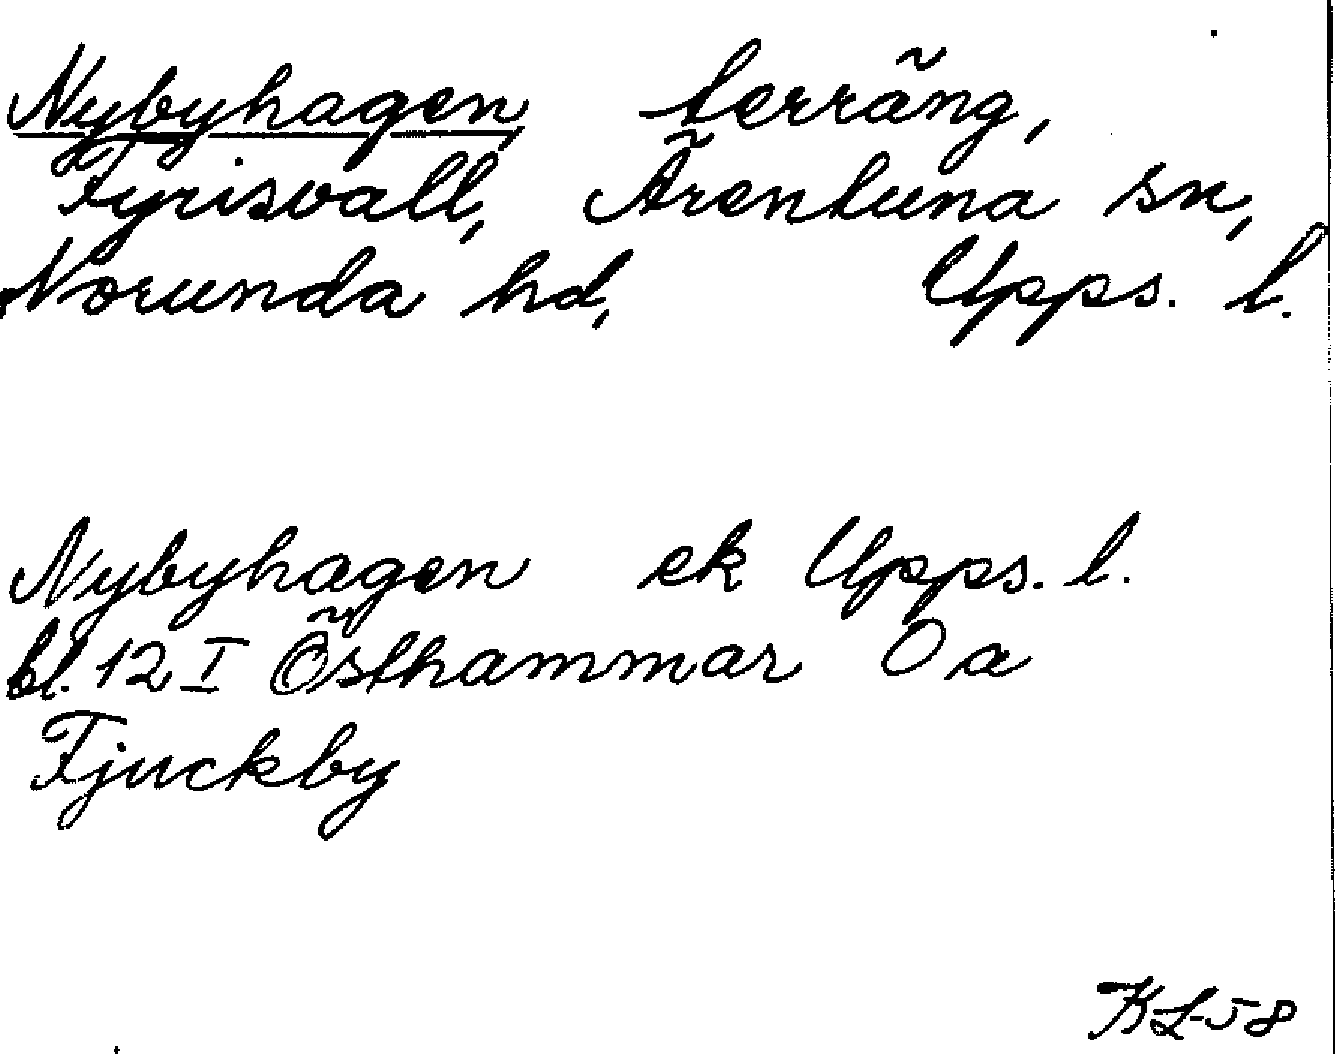 Nybyhagen, terräng,
Fyrisvall, Ärentuna sn,
Norunda hd, Upps. l.
Nybyhagen ek Upps. l.
bl. 12 I Östhammar Oa
Fjuckby
KL-58